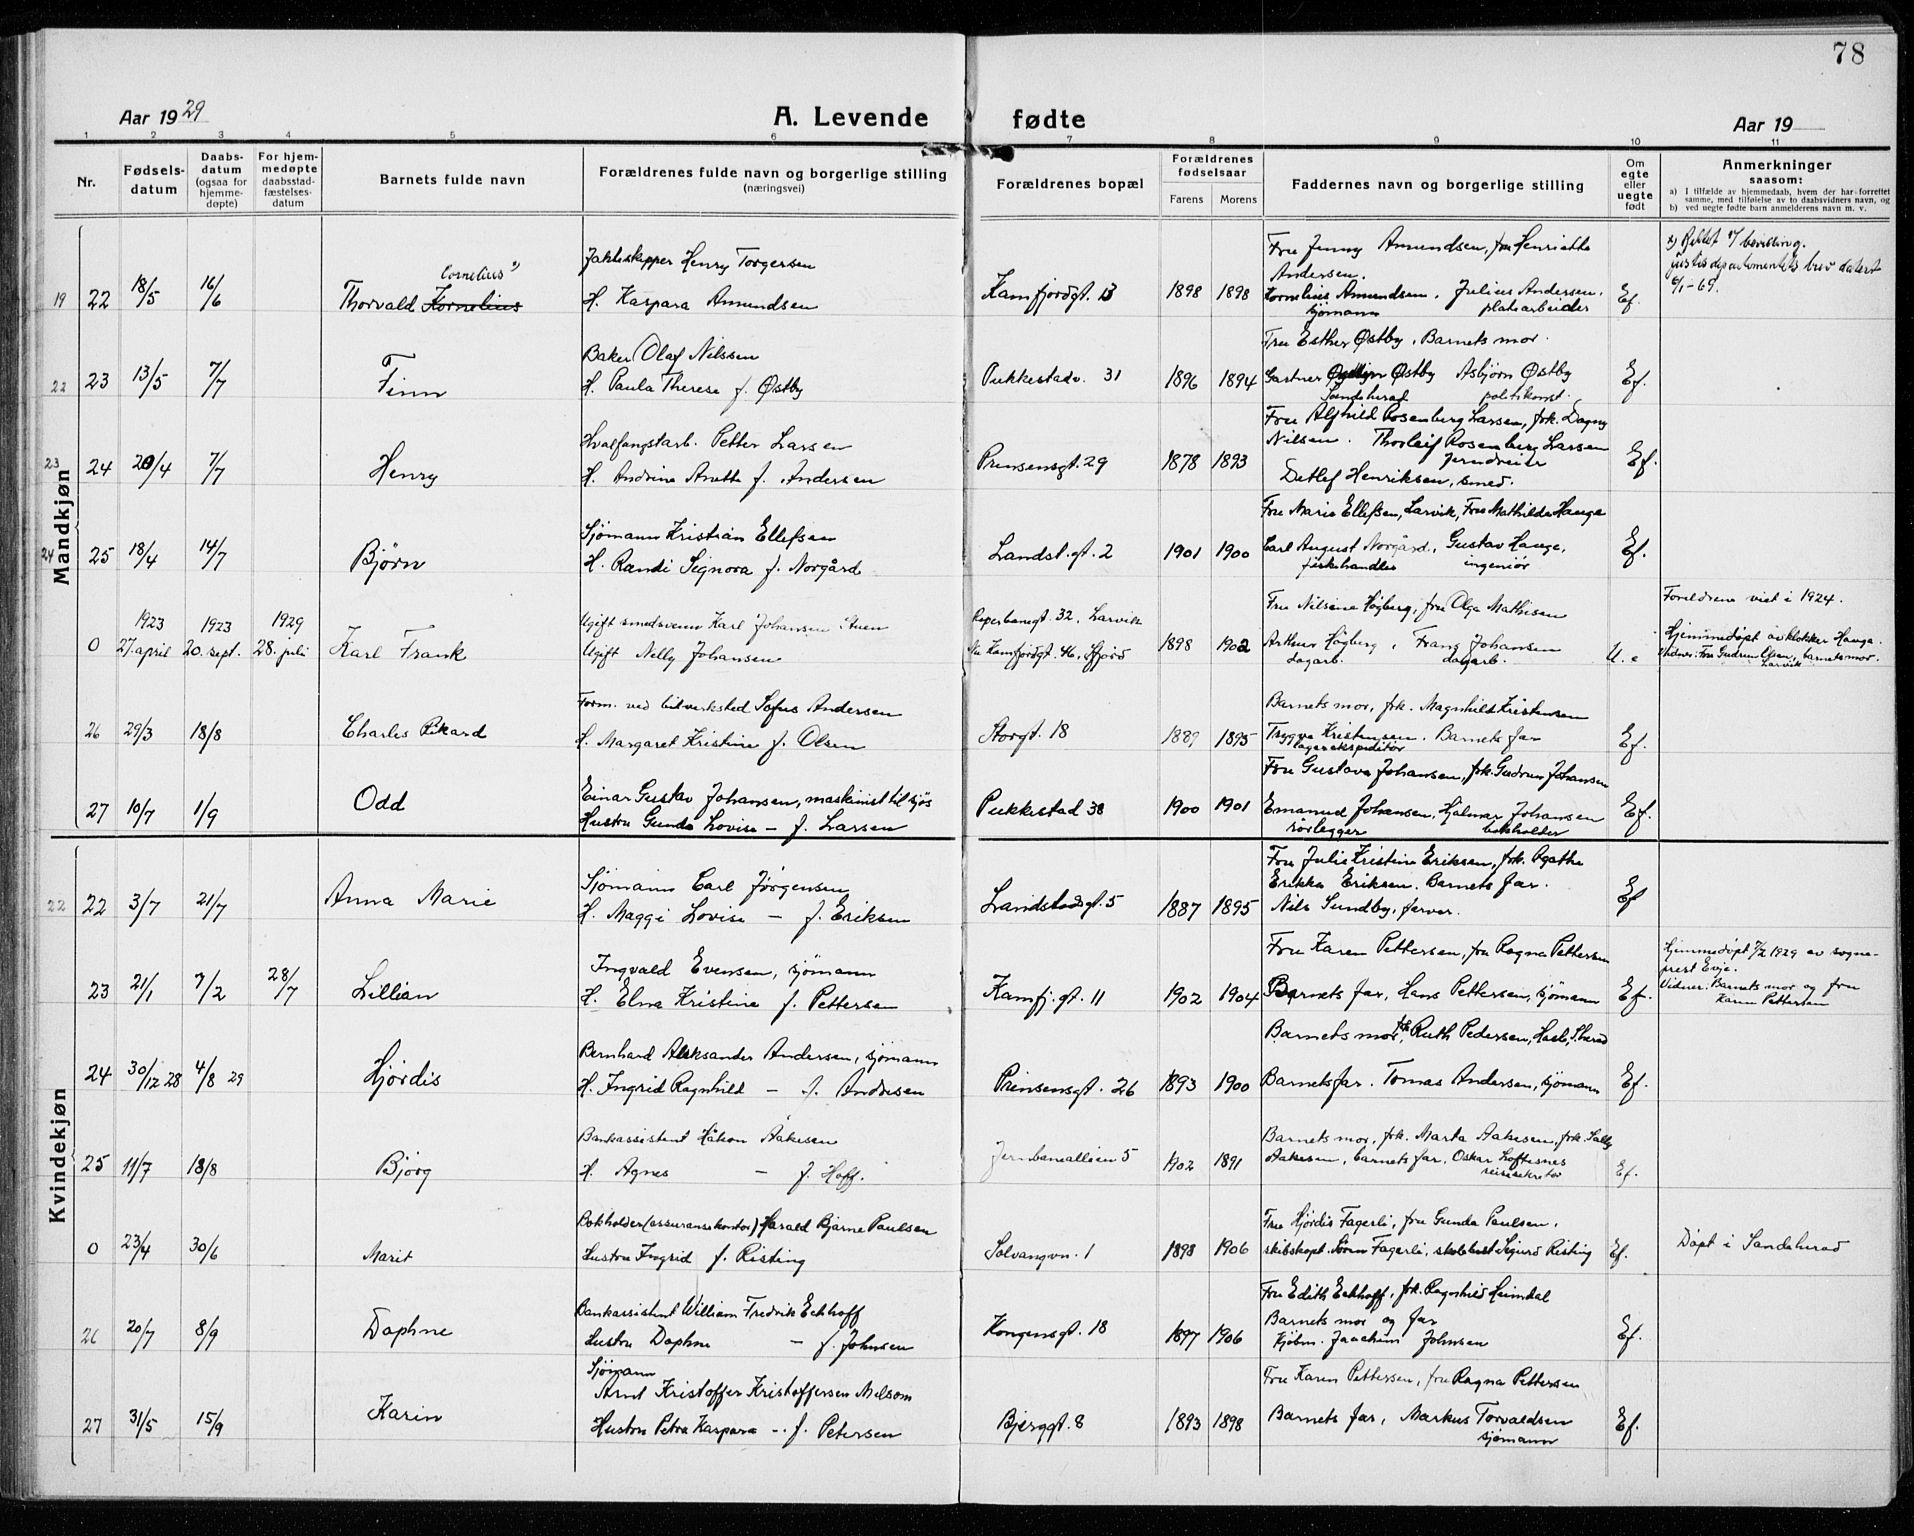 78
Aar 1929 A. Levende fødte Aar 19
1 2 3 4 5 6 7 8 9 10 11
Nr.
Fødsels-
datum
Daabs-
datum
(ogsaa for
hjemme-
døpte)
For hjem-
medøpte
daabsstad-
fæstelses-
datum
Barnets fulde navn
Forældrenes fulde navn og borgerlige stilling
(næringsvei)
Forældrenes bopæl
Forældrenes
fødselsaar
Farens Morens
Faddernes navn og borgerlige stilling
Om
egte
eller
uegte
født
Anmerkninger
saasom:
a) I tilfælde av hjemmedaab, hvem der har forrettet
samme, med tilføielse av to daabsvidners navn, og
b) ved uegte fødte barn anmelderens navn m. v.
Mandkjøn
19 22 18/5 16/6
Cornelius x)
Thorvald Kornelius
Jakteskipper Henry Torgersen
H. Kaspara Amundsen
Kamfjordgt. 13 1898 1898
Fru Jenny Amundsen, fru Henriette
Andersen.
Kornelius Amundsen, Julius Andersen,
sjømann platearbeider
Ef.
x) Rettet if bevilling.
Justisdepartementets brev datert
6/1-69.
22 23 13/5 7/7 Finn
Baker Olaf Nilssen
H. Paula Therese f. Østby
Pukkestadv. 31 1896 1894
Fru Esther Østby, Barnets mor.
Gartner Østby Asbjørn Østby
Sandeherad politikonst.
Ef.
23 24 20/4 7/7 Henry
Hvalfangstarb. Petter Larsen
H. Andrine Anette f. Andersen
Prinsensgt. 29 1878 1893
Fru Alfhild Rosenberg Larsen, frk. Dagny
Nilsen. Thorleif Rosenberg Larsen
jerndreier
Detlef Henriksen, smed.
Ef.
24 25 18/4 14/7 Bjørn
Sjømann Kristian Ellefsen
H. Randi Signora f. Norgård
Landst. gt. 2 1901 1900
Fru Marie Ellefsen, Larvik, Fru Mathilde Hauge
Carl August Norgård, Gustav Hauge,
fiskehandler ingeniør
Ef.
0 1923 27. april 1923 20. sept. 1929 28. juli Karl Frank
Ugift smedsvenn Karl Johansen Stuen
Ugift Nelly Johansen
Reperbanegt. 32, Larvik
Nu Kamfjordgt. 46, Sfjord
1898 1902
Fru Nilsine Högberg, fru Olga Mathisen
Arthur Högberg, Frang Johansen
dagarb. dagarb.
U. e
Foreldrene viet i 1924.
Hjemmedøpt av klokker Hauga.
Vidner: Fru Gudrun Olsen, barnets mor.
Larvik
26 29/3 18/8 Charles Rikard
Form. ved bilverksted Sofus Andersen
H. Margaret Kristine f. Olsen
Storgt. 18 1889 1895
Barnets mor, frk. Magnhild Kristensen
Trygve Kristensen. Barnets far
lagerekspeditör
Ef.
27 10/7 1/9 Odd
Einar Gustav Johansen, maskinist til sjøs
Hustru Gunda Lovise – f. Larsen
Pukkestad 38 1900 1901
Fru Gustava Johansen, frk. Gudrun Johansen
Emanuel Johansen, Hjalmar Johansen
rörlegger bokholder
Ef.
Kvindekjøn
22 22 3/7 21/7 Anna Marie
Sjømann Carl Jørgensen
H. Maggi Lovise – f. Eriksen
Landstadsgt. 5 1887 1895
Fru Julie Kristine Eriksen, frk. Agathe
Erikka Eriksen. Barnets far.
Nils Sundby, farver.
Ef
23 21/1 7/2 28/7 Lillian
Ingvald Evensen, sjømann
H. Elna Kristine f. Pettersen
Kamfj. gt. 11 1902 1904
Fru Karen Pettersen, fru Ragna Pettersen
Barnets far, Hans Pettersen, sjømann
Ef.
Hjemmedøpt 7/2 1929 av sogne-
prest Evje.
Vidner: Barnets mor og fru
Karen Pettersen
24 30/12 28 4/8 29 Hjördis
Bernhard Aleksander Andersen, sjømann
H. Ingrid Ragnhild – f. Andresen
Prinsensgt. 26 1893 1900
Barnets mor, frk. Ruth Pedersen, Hasle, S.herad
Barnets far. Tomas Andersen, sjømann
Ef.
25 11/7 18/8 Bjørg
Bankassistent Håkon Aakesen
H. Agnes – f. Hoff.
Jernbanealléen 5 1902 1891
Barnets mor, frk. Marta Aakesen, frk. Sally
Aakesen, barnets far, Oskar Loftesnes
reisesekretær
Ef.
0 23/4 30/6 Marit
Bokholder (assuransekontor) Harald Bjarne Paulsen
Hustru Ingrid f. Risting
Solvangvn. 1 1898 1906
Fru Hjördis Fagerli, fru Gunda Paulsen,
skibskapt. Søren Fagerli, skolebest. Sigurd Risting
Ef.
Døpt i Sandeherad
26 20/7 8/9 Daphne
Bankassistent William Fredrik Eckhoff
Hustru Daphne – f. Johnsen
Kongensgt. 18 1897 1906
Fru Edith Eckhoff, frk. Ragnhild Heimdal
Barnets mor og far
Kjøbm. Joachim Johnsen
Ef.
27 31/5 15/9 Karin
Sjømann
Arnt Kristoffer Kristoffersen Melsom
Hustru Petra Kaspara – f. Petersen
Bjerggt. 8 1893 1898
Fru Karen Pettersen, fru Ragna Pettersen
Barnets far, Markus Torvaldsen
sjømann
Ef.